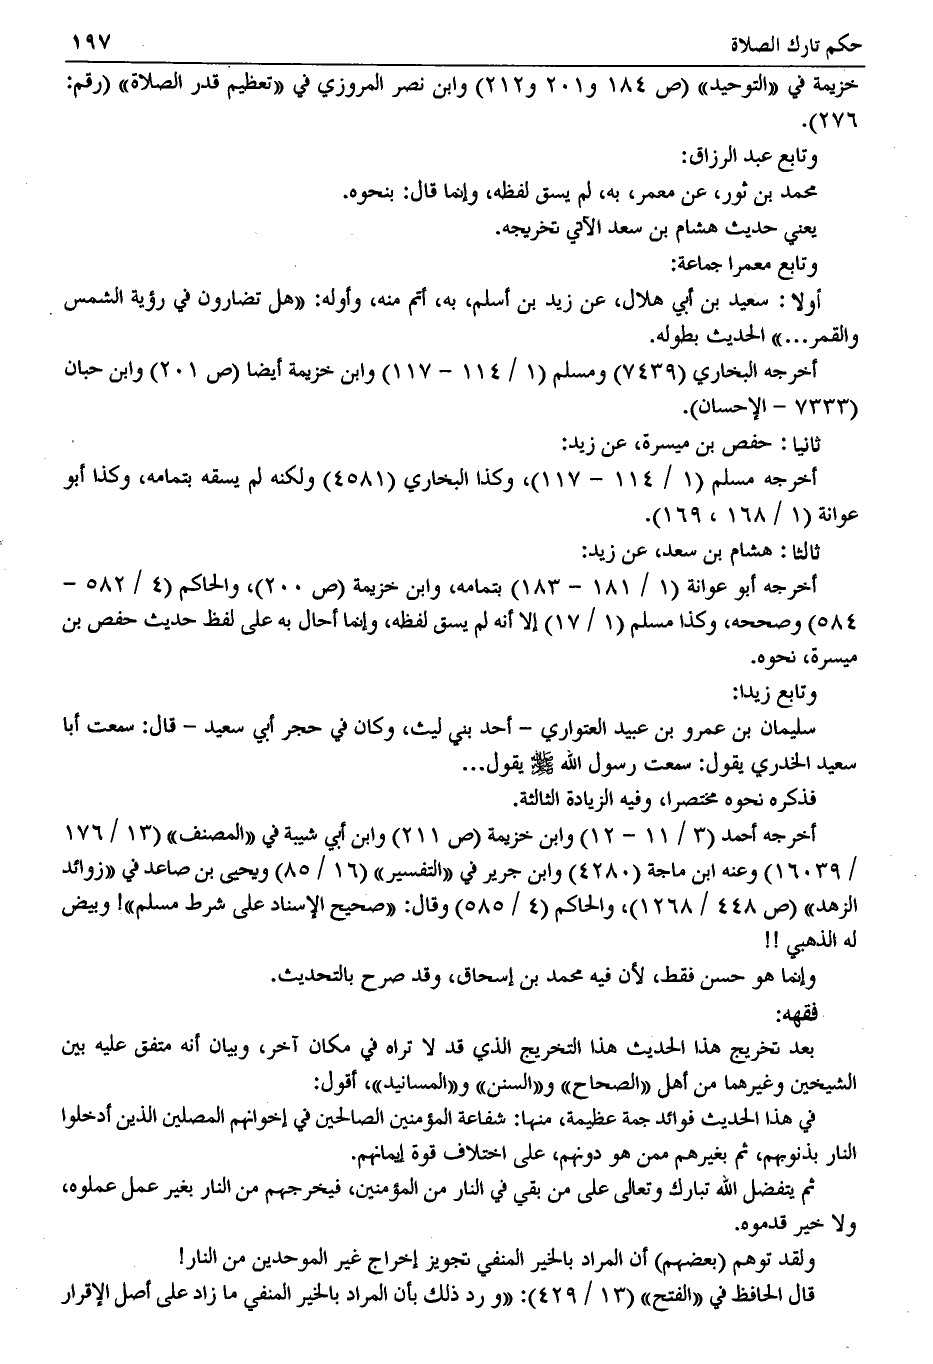 حكم تارك الصلاة ١٩٧
خزيمة في «التوحيد» (ص ١٨٤ و٢٠١ و٢١٢) وابن نصر المروزي في «تعظيم قدر الصلاة» (رقم:
٢٧٦).
وتابع عبد الرزاق:
محمد بن ثور، عن معمر، به، لم يسق لفظه، وإنما قال: بنحوه.
يعني حديث هشام بن سعد الآتي تخريجه.
وتابع معمرا جماعة:
أولا: سعيد بن أبي هلال، عن زيد بن أسلم، به، أتم منه، وأوله: «هل تضارون في رؤية الشمس
والقمر...» الحديث بطوله.
أخرجه البخاري (٧٤٣٩) ومسلم (١ / ١١٤ – ١١٧) وابن خزيمة أيضا (ص ٢٠١) وابن حبان
(٧٣٣٣ – الإحسان).
ثانيا: حفص بن ميسرة، عن زيد:
أخرجه مسلم (١ / ١١٤ – ١١٧)، وكذا البخاري (٤٥٨١) ولكنه لم يسقه بتمامه، وكذا أبو
عوانة (١ / ١٦٨ ، ١٦٩).
ثالثا: هشام بن سعد، عن زيد:
أخرجه أبو عوانة (١ / ١٨١ – ١٨٣) بتمامه، وابن خزيمة (ص ٢٠٠)، والحاكم (٤ / ٥٨٢ –
٥٨٤) وصححه، وكذا مسلم (١ / ١٧) إلا أنه لم يسق لفظه، وإنما أحال به على لفظ حديث حفص بن
ميسرة، نحوه.
وتابع زيدا:
سليمان بن عمرو بن عبيد العتواري – أحد بني ليث، وكان في حجر أبي سعيد – قال: سمعت أبا
سعيد الخدري يقول: سمعت رسول الله ﷺ يقول...
فذكره نحوه مختصرا، وفيه الزيادة الثالثة.
أخرجه أحمد (٣ / ١١ – ١٢) وابن خزيمة (ص ٢١١) وابن أبي شيبة في «المصنف» (١٣ / ١٧٦
/ ١٦٠٣٩) وعنه ابن ماجة (٤٢٨٠) وابن جرير في «التفسير» (١٦ / ٨٥) ويحيى بن صاعد في «زوائد
الزهد» (ص ٤٤٨ / ١٢٦٨)، والحاكم (٤ / ٥٨٥) وقال: «صحيح الإسناد على شرط مسلم»! وبيض
له الذهبي !!
وإنما هو حسن فقط، لأن فيه محمد بن إسحاق، وقد صرح بالتحديث.
فقهه:
بعد تخريج هذا الحديث هذا التخريج الذي قد لا تراه في مكان آخر، وبيان أنه متفق عليه بين
الشيخين وغيرهما من أهل «الصحاح» و«السنن» و«المسانيد»، أقول:
في هذا الحديث فوائد جمة عظيمة، منها: شفاعة المؤمنين الصالحين في إخوانهم المصلين الذين أدخلوا
النار بذنوبهم، ثم بغيرهم ممن هو دونهم، على اختلاف قوة إيمانهم.
ثم يتفضل الله تبارك وتعالى على من بقي في النار من المؤمنين، فيخرجهم من النار بغير عمل عملوه،
ولا خير قدموه.
ولقد توهم (بعضهم) أن المراد بالخير المنفي تجويز إخراج غير الموحدين من النار!
قال الحافظ في «الفتح» (١٣ / ٤٢٩): «و رد ذلك بأن المراد بالخير المنفي ما زاد على أصل الإقرار